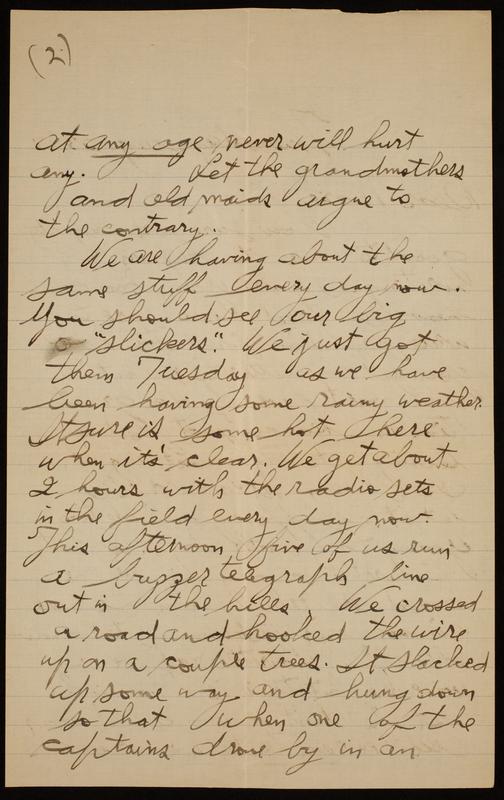 (2)
at any age never will hurt
any. Let the grandmothers
and old maids argue to
the contrary.
We are having about the
same stuff every day now.
You should see our big
"slickers". We just got
them Tuesday as we have
been having some rainy weather.
It sure is some hot here
when it's clear. We get about
2 hours with the radio sets
in the field every day now.
This afternoon, five of us run
a buzzer telegraph line
out in the hills. We crossed
a road and hooked the wire
up on a couple trees. It slacked
up some way and hung down
so that when one of the
captains drove by in an